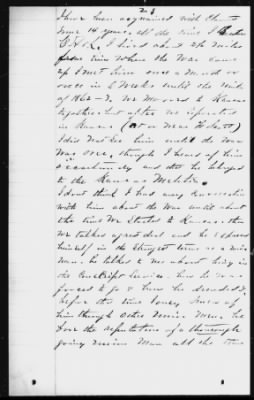 23
I have been acquainted with
some 14 years all the time I
I lived about 2½ miles
from him when the War came
up I met him once a week or
once in 2 weeks until the
of 1862-3, we moved to Kansas
together but after we separated
in Kansas (at or near
I did not see him until the War
was over, though I heard of him
occasionally and that he belonged
to the Kansas Militia.
I dont think I had any conversation
with him about the War until about
the time We Started to Kansas. then
We talked a great deal and he expressed
himself in the Strongest terms as a Union
man. he talked to me about being in
the Conscript Service. how he was
forced to go & how he dreaded it,
before this time I only knew of
him through other Union Men. he
bore the reputation of a thorough
going Union Man all the time